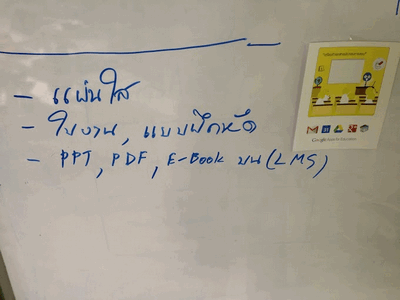 - แผ่นใส
- ใบงาน, แบบฝึกหัด
- PPT, PDF, E-Book บน (LMS)